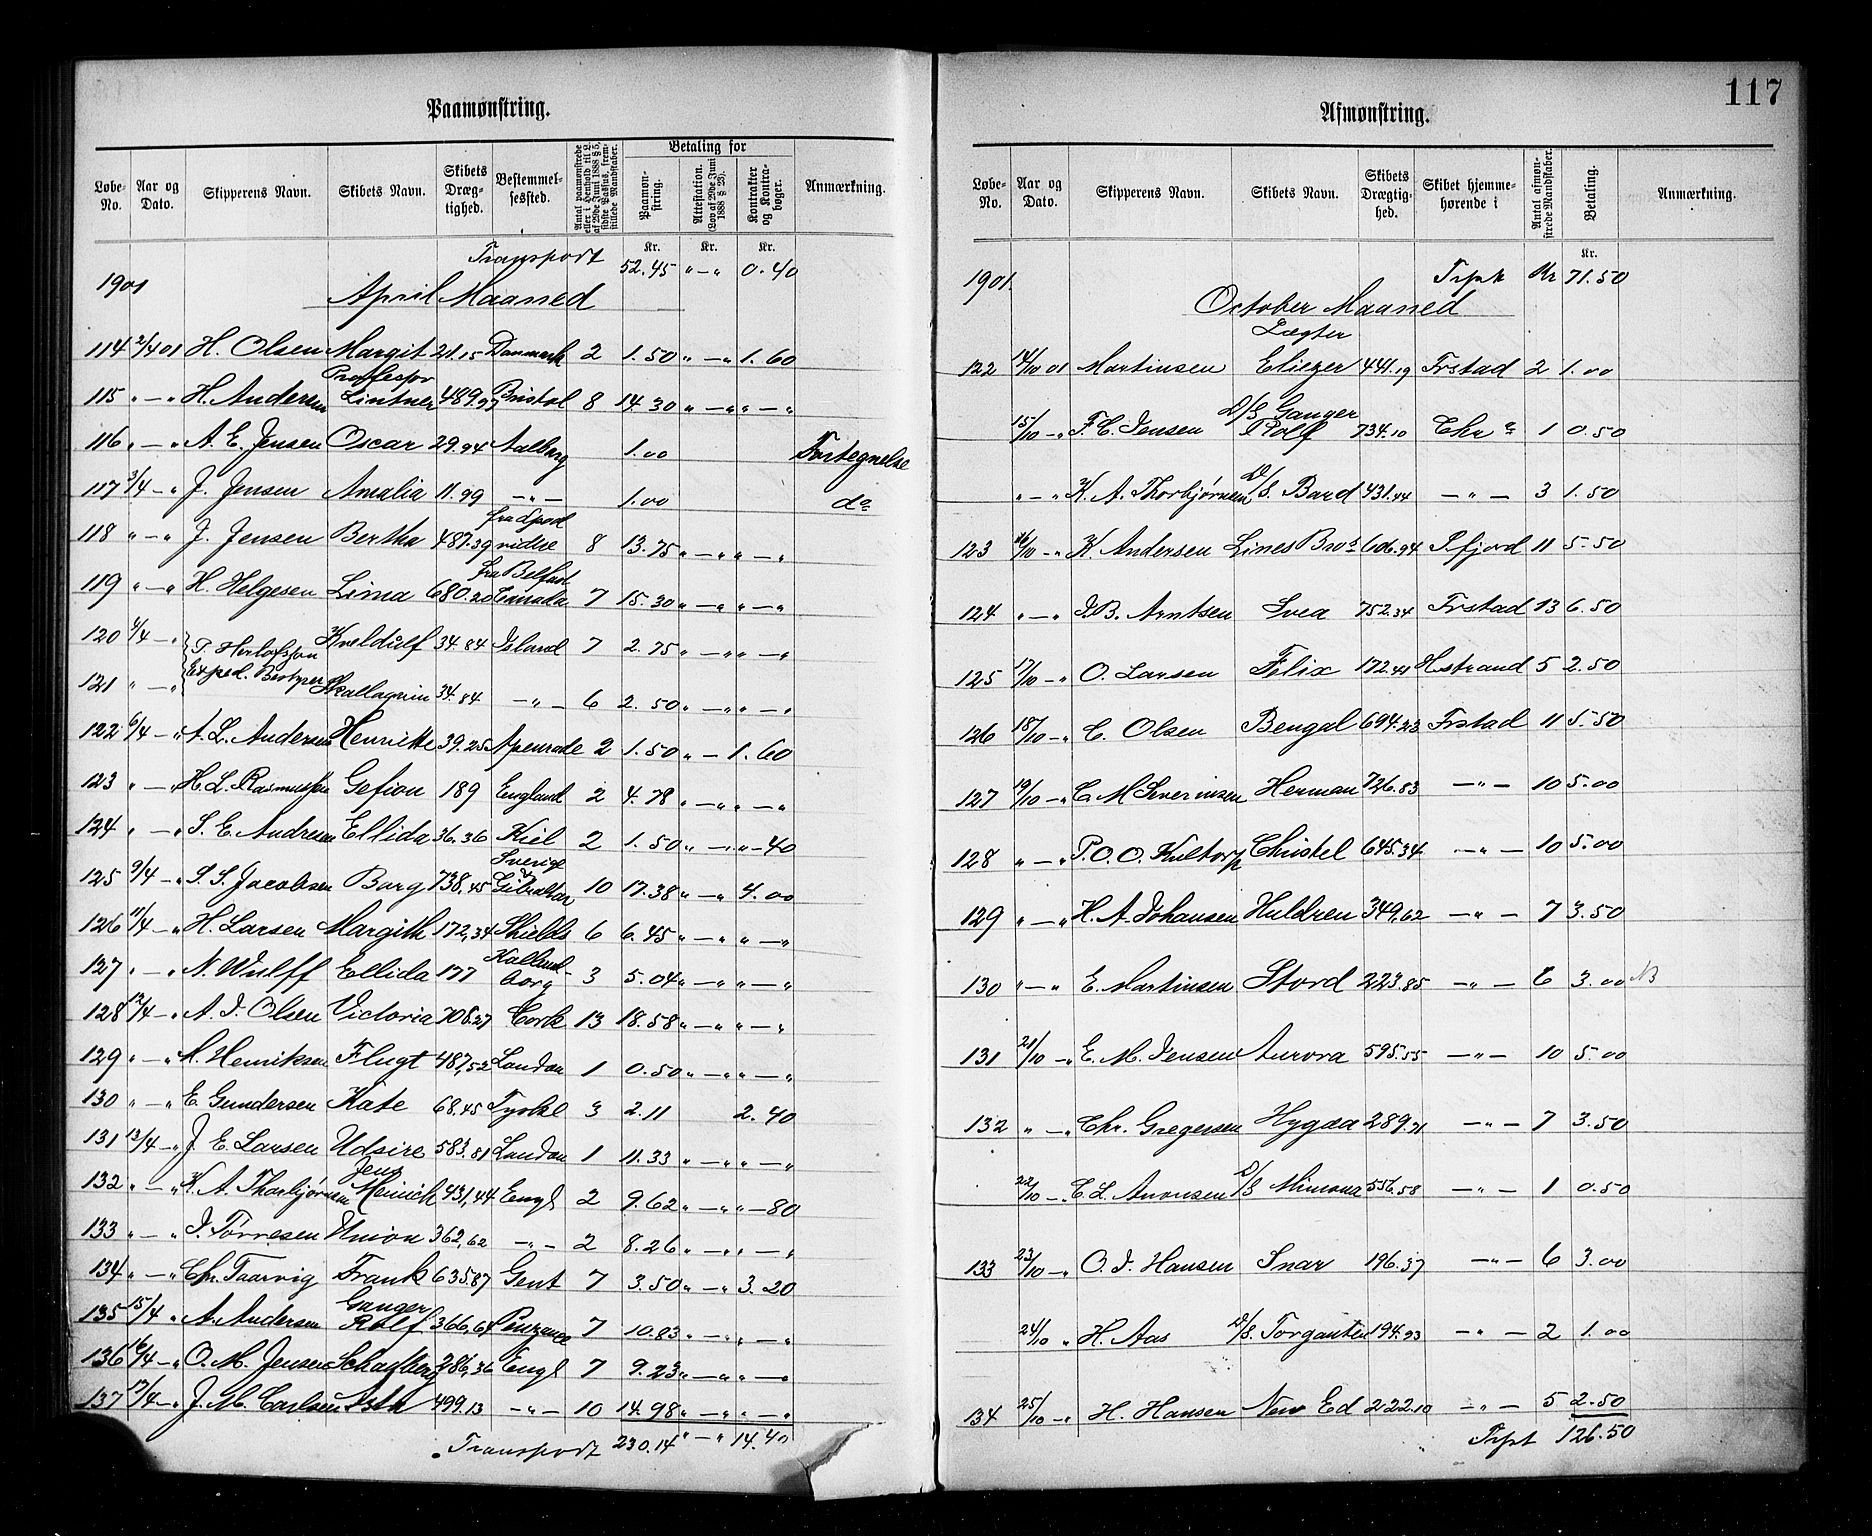 Paamønstring.
Løbe-No. Aar og Dato. Skipperens Navn. Skibets Navn. Skibets Dræg-tighed. Bestemmel-sessted. Antal paamønstrede eller i Henhold til L. af 29de Juni 1888 § 5, sidste Passus, frem-stillede Mandskaber. Betaling for Paamøn-string. Attestation. (Lov af 29de Juni 1888 § 23). Kontrakter og Kontra-bøger. Anmærkning.
Kr. Kr. Kr.
Transport 52.45 " — " 0.40
1901
April Maaned
114 2/4 01 H. Olsen Margit 21.15 Danmark 2 1.50 " — " 1.60
115 " — " H. Andersen Proffessor Lintner 489.97 Bristol 8 14.30 " — " " — "
116 " — " A. E. Jensen Oscar 29.94 Aalborg 1.00 Fortegnelse
117 3/4 — " J. Jensen Amalia 11.99 — " — 1.00 do
118 " — " J. Jensen Bertha 487.39 8 13.75 " — " " — "
119 " — " H. Helgesen Lima 680.20 fra Belfast Canada 7 15.30 " — " " — "
120 4/4 — " P. Herlofsson Kveldulf 34.84 Island 7 2.75 " — " " — "
121 " — " Exped. Bestyrer Skallagrim 34.84 — " — 6 2.50 " — " " — "
122 6/4 — " A. L. Andersen Henriette 39.25 Apenrade 2 1.50 " — 1.60
123 " — " H. L. Rasmussen Gefion 189 England 2 4.78 " — " " — "
124 " — " S. E. Andresen Ellida 36.36 Kiel 2 1.50 " — " " — 40
125 9/4 — " S. S. Jacobsen Borg 738.45 Sverige & Gibraltar 10 17.38 " — " 4.00
126 11/4 — " H. Larsen Margith 172,34 Shields 6 6.45 " — " " — "
127 " — " N. Wulff Ellida 177 Kallund-borg 3 5.04 " — " " — "
128 12/4 — " A. J. Olsen Victoria 708.27 Cork 13 18.58 " — " " — "
129 " — " M. Henriksen Flugt 487,52 London 1 0.50 " — " " — "
130 " — " E. Gundersen Kate 68.45 Tyskl 3 2.11 2.40
131 13/4 — " J. E. Larsen Udsire 583.81 London 1 11.33 " — " " — "
132 " — " K. A. Thorbjørnsen Jens Meinich 431,44 Engl 2 9.62 " — " " — 80
133 " — " J. Tørresen Union 362,62 — " — 2 8.26 " — " " — "
134 " — " Chr. Taarvig Frank 635.87 Gent 7 3.50 " — " 3.20
135 15/4 " A. Andersen Ganger Rolf 366,64 Penzance 7 10.83 " — " " — "
136 16/4 — " O. M. Jensen 286,36 Engl 7 9.23 " — " " — "
137 17/4 — " J. M. Carlsen 499.13 — " — 10 14.98 " — " " — "
Transport 230.14 " — " 14.40
117
Afmønstring.
Løbe-No. Aar og Dato. Skipperens Navn. Skibets Navn. Skibets Drægtig-hed. Skibet hjemme-hørende i Antal afmøn-strede Mandskaber. Betaling. Anmærkning.
Kr.
1901. Trpt Kr 71.50
October Maaned
122 14/10 01 Martinsen Lægter Eliezer 441.19 Frstad 2 1.00
15/10 — " F. C. Jensen D/S Ganger Rolf 734.10 Chr a 1 0.50
" — " K. A. Thorbjørnsen D/S. Bard 431.44 — " — 3 1.50
123 16/10 — " K Andersen Lines Bros 606.94 Sfjord 11 5.50
124 " — " J. B. Arntsen Svea 752.34 Frstad 13 6.50
125 17/10 — " O. Larsen Felix 172.41 Hstrand 5 2.50
126 18/10 — " C. Olsen Bengal 694.23 Frstad 11 5.50
127 19/10 — " C. M Severinsen Herman 726.83 — " — 10 5.00
128 " — " P. O. O. Kultorp Christel 645.34 — " — 10 5.00
129 " — " H. A. Johansen Huldren 349.62 — " — 7 3.50
130 " — " E. Martinsen Stord 223.85 — " — 6 3.00 NB
131 21/10 — " E. M. Jensen Aurora 595.55 — " — 10 5.00
132 " — " Chr. Gregersen Hygæa 289.21 — " — 7 3.50
22/10 — " C. L. Aronsen D/S Mimona 556.58 — " — 1 0.50
133 23/10 — " O. J. Hansen Snar 196.37 — " — 6 3.00
24/10 " H. Aas D/S. Torgauten 194.93 — " — 2 1.00
134 25/10 — " H. Hansen New Ed 222.10 — " — 5 2.50
Trpt 126.50